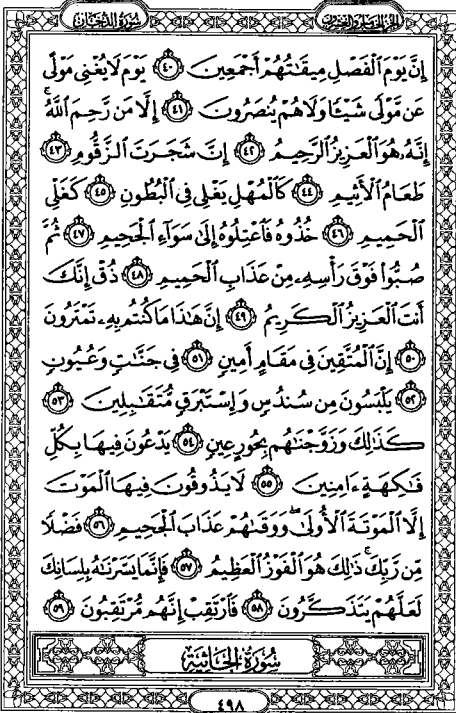 الجزء الخامس والعشرون سورة الدخان
إِنَّ يَوْمَ ٱلْفَصْلِ مِيقَٰتُهُمْ أَجْمَعِينَ ٤٠ يَوْمَ لَا يُغْنِى مَوْلًى
عَن مَّوْلًى شَيْـًٔا وَلَا هُمْ يُنصَرُونَ ٤١ إِلَّا مَن رَّحِمَ ٱللَّهُ ۚ
إِنَّهُۥ هُوَ ٱلْعَزِيزُ ٱلرَّحِيمُ ٤٢ إِنَّ شَجَرَتَ ٱلزَّقُّومِ ٤٣
طَعَامُ ٱلْأَثِيمِ ٤٤ كَٱلْمُهْلِ يَغْلِى فِى ٱلْبُطُونِ ٤٥ كَغَلْىِ
ٱلْحَمِيمِ ٤٦ خُذُوهُ فَٱعْتِلُوهُ إِلَىٰ سَوَآءِ ٱلْجَحِيمِ ٤٧ ثُمَّ
صُبُّوا۟ فَوْقَ رَأْسِهِۦ مِنْ عَذَابِ ٱلْحَمِيمِ ٤٨ ذُقْ إِنَّكَ
أَنتَ ٱلْعَزِيزُ ٱلْكَرِيمُ ٤٩ إِنَّ هَٰذَا مَا كُنتُم بِهِۦ تَمْتَرُونَ
٥٠ إِنَّ ٱلْمُتَّقِينَ فِى مَقَامٍ أَمِينٍ ٥١ فِى جَنَّٰتٍ وَعُيُونٍ
٥٢ يَلْبَسُونَ مِن سُندُسٍ وَإِسْتَبْرَقٍ مُّتَقَٰبِلِينَ ٥٣
كَذَٰلِكَ وَزَوَّجْنَٰهُم بِحُورٍ عِينٍ ٥٤ يَدْعُونَ فِيهَا بِكُلِّ
فَٰكِهَةٍ ءَامِنِينَ ٥٥ لَا يَذُوقُونَ فِيهَا ٱلْمَوْتَ
إِلَّا ٱلْمَوْتَةَ ٱلْأُولَىٰ ۖ وَوَقَىٰهُمْ عَذَابَ ٱلْجَحِيمِ ٥٦ فَضْلًا
مِّن رَّبِّكَ ۚ ذَٰلِكَ هُوَ ٱلْفَوْزُ ٱلْعَظِيمُ ٥٧ فَإِنَّمَا يَسَّرْنَٰهُ بِلِسَانِكَ
لَعَلَّهُمْ يَتَذَكَّرُونَ ٥٨ فَٱرْتَقِبْ إِنَّهُم مُّرْتَقِبُونَ ٥٩
سُورَةُ الجَاثِيَةِ
٤٩٨